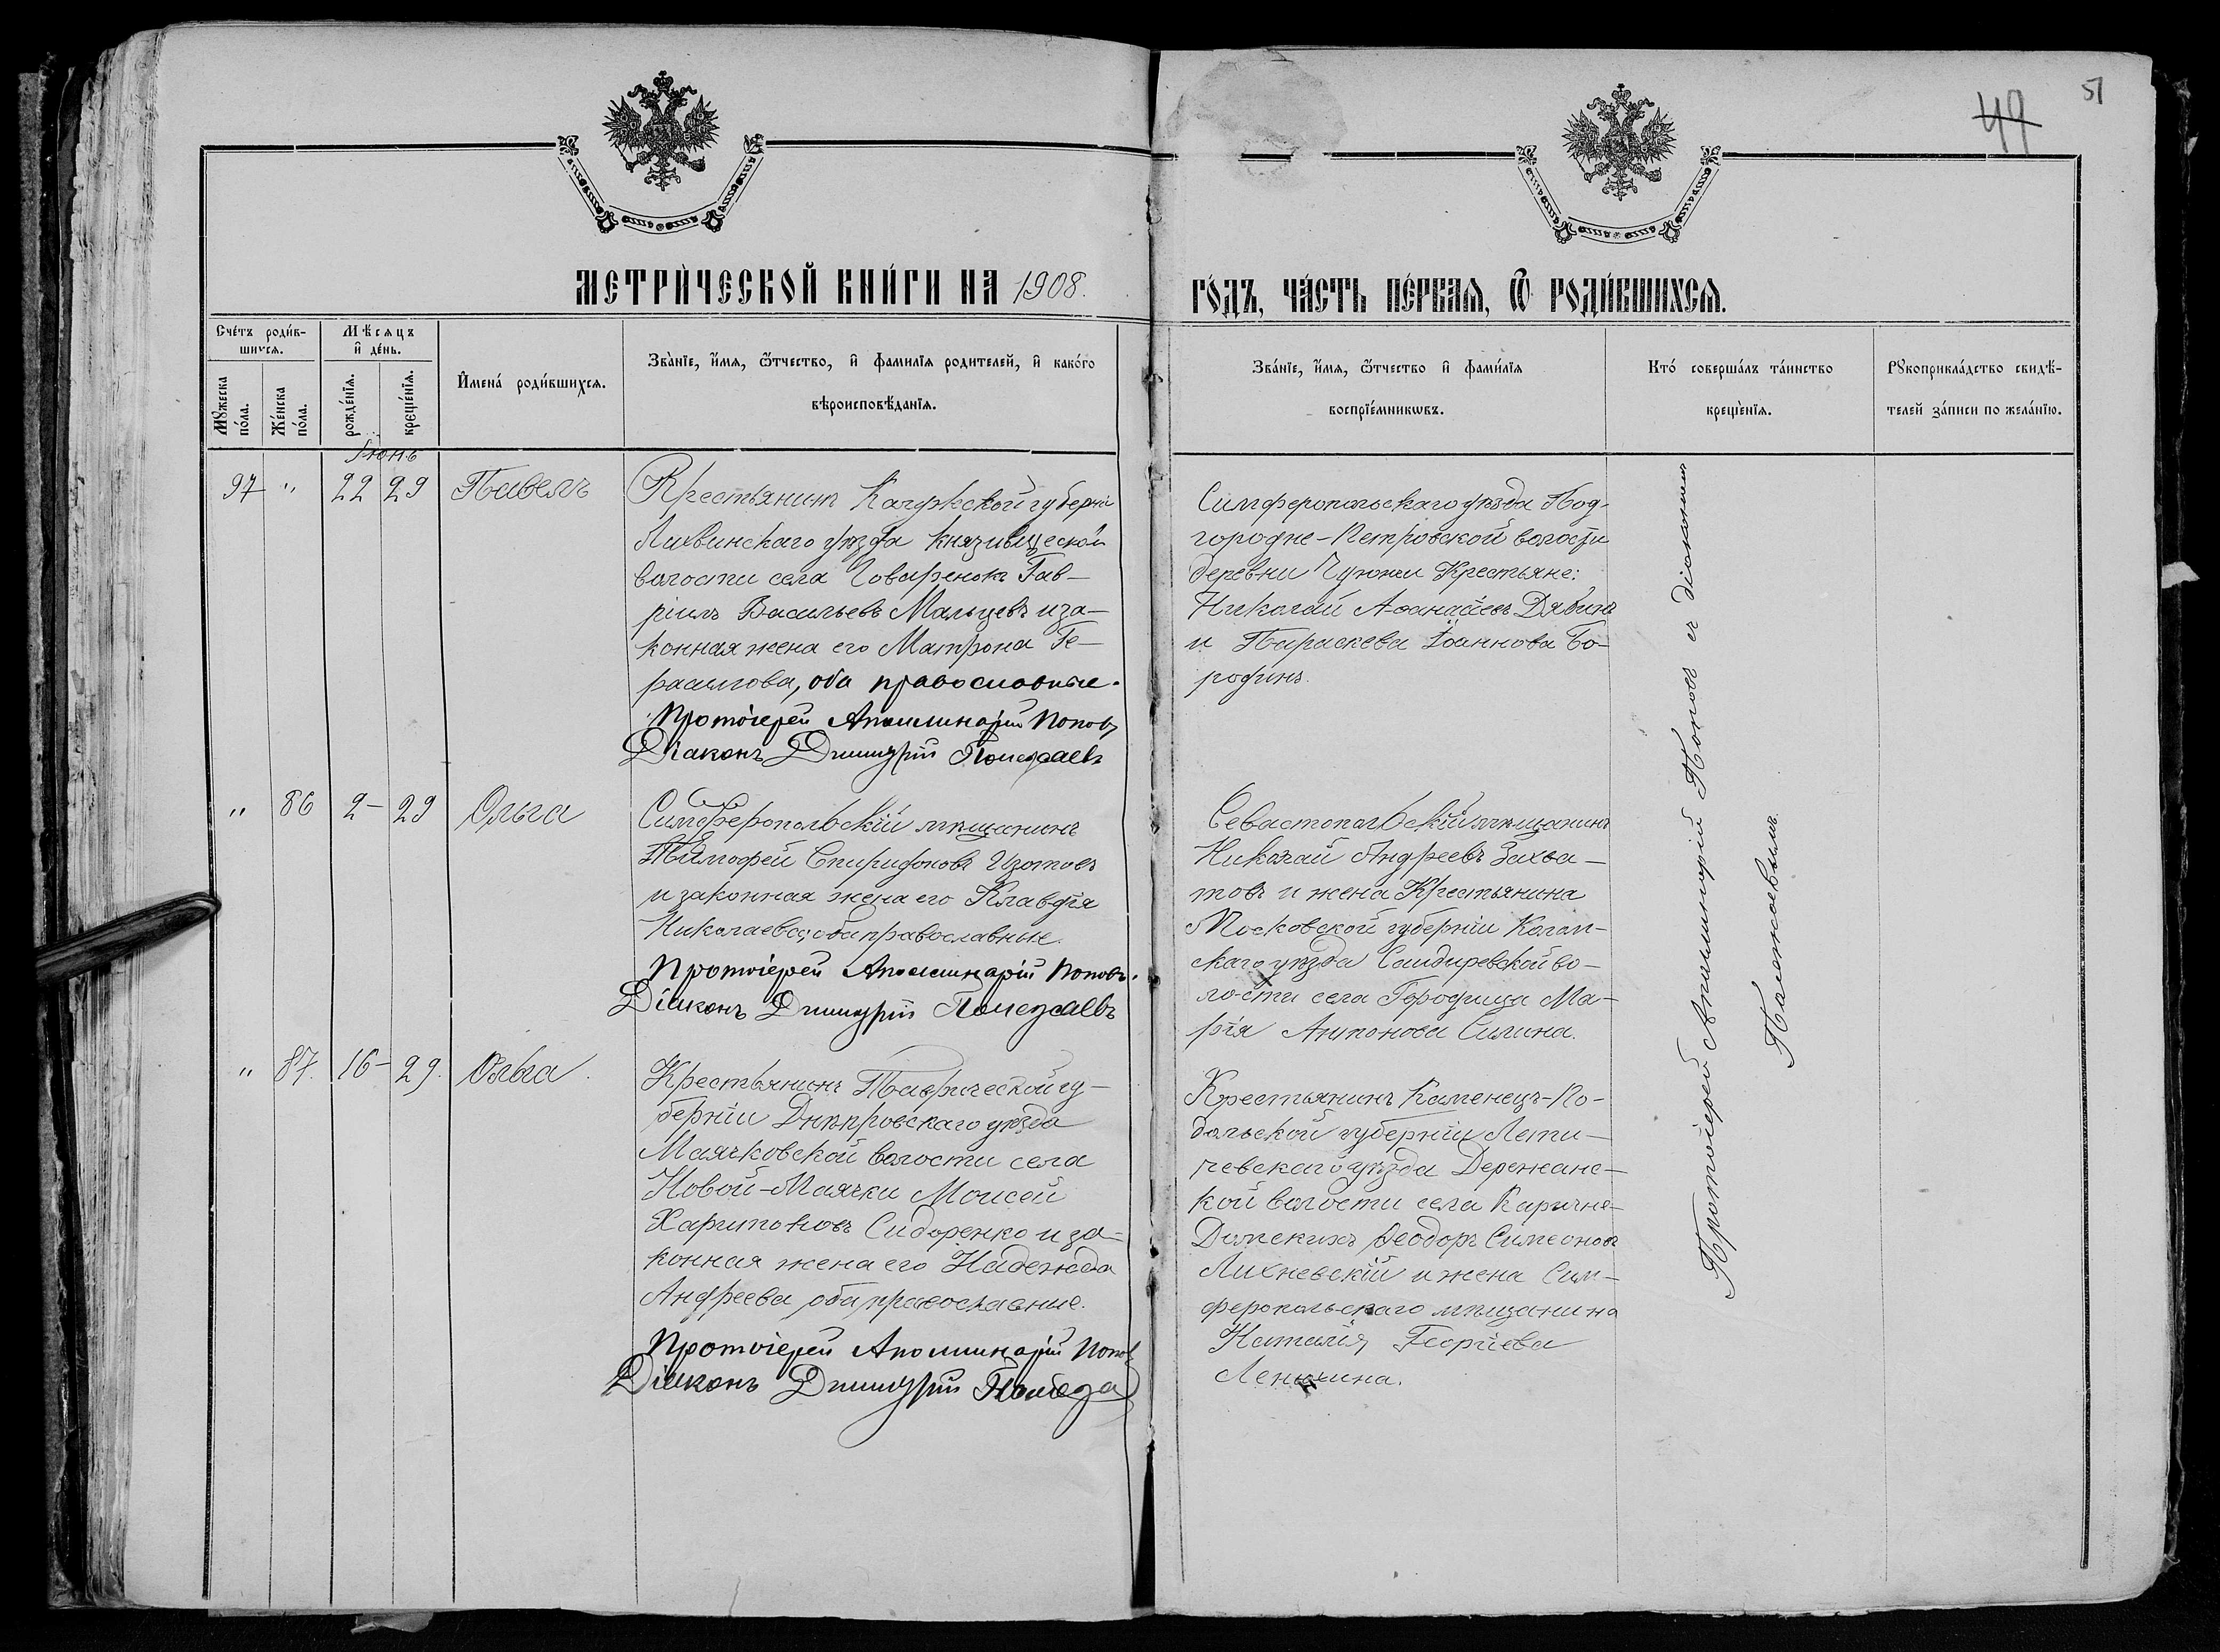 49
51
МЕТРИ́ЧЕСКОЙ КНИ́ГИ НА 1908.
ГО́ДЪ, ЧА́СТЬ ПЕ́РВАЯ, Ѿ РОДИ́ВШИХСЯ.
Сче́тъ роди́в-
шихся.
Мѣсяцъ
и҆ де́нь.
Мꙋ́жеска
по́ла.
Же́нска
по́ла.
рожде́нїѧ.
креще́нїѧ.
И҆мена̀ роди́вшихся.
Зва́нїе, и҆́мѧ, ѻ҆́тчество, и҆ фами́лїѧ родителей, и҆ како́го
вѣроисповѣ́данїѧ.
Зва́нїе, и҆́мѧ, ѻ҆́тчество и҆ фами́лїѧ
воспрїе́мникѡвъ.
Кто́ соверша́лъ та́инство
креще́нїѧ.
Рꙋкоприкла́дство свидѣ́-
телей за́писи по жела́нїю.
Іюнь
97 " 22 29 Павелъ
Крестьянинъ Калужской губерніи
Лихвинскаго уѣзда Князищеской
волости села Говаренокъ Гав-
ріилъ Васильевъ Мальцевъ и за-
конная жена его Матрона Ге-
расимова, оба православные.
Протоіерей Аполлинарій Поповъ
Діаконъ Димитрій
Симферопольскаго уѣзда Под-
городне-Петровской волости
деревни Крестьяне:
Николай Аѳанасіевъ Дябинъ
и Параскева Іоаннова Бо-
родинъ.
" 86 2 - 29 Ольга
Симферопольскій мѣщанинъ
Тимофей Спиридоновъ Изотовъ
и законная жена его Клавдія
Николаева, оба православные.
Протоіерей Аполлинарій Поповъ.
Діаконъ Димитрій
Севастопольскій мѣщанинъ
Николай Андреевъ Захва-
товъ и жена Крестьянина
Московской губерніи Колом-
скаго уѣзда Сандыревской во-
лости села Городища Ма-
рія Антонова Силина.
" 87. 16 - 29. Ольга.
Крестьянинъ Таврической гу-
берніи Днѣпровскаго уѣзда
Маячковской волости села
Новой-Маячки Моисей
Харитоновъ Сидоренко и за-
конная жена его Надежда
Андреева, оба православные.
Протоіерей Аполлинарій Поповъ
Діаконъ Димитрій
Крестьянинъ Каменецъ-По-
дольской губерніи Лети-
чевскаго уѣзда Деражанс-
кой волости села
Ѳеодоръ Симеоновъ
Лихневскій и жена Сим-
феропольскаго мѣщанина
Наталія Георгіева
Ленкина.
Протоіерей Аполлинарій Поповъ съ діакономъ